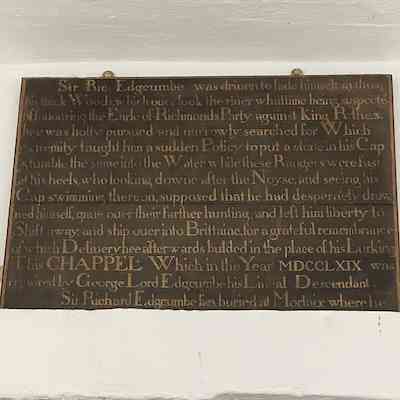 Sir Ric Edgcumbe was driuen to hide himself in those
his thick Woods which ouerlook the riuer whattime being suspected
of fauouring the Earle of Richmonds Party against King R. the 3
hee was hotly pursued and narrowly searched for Which
extremity taught him a sudden Policy to put a stone in his Cap
& tumble the same into the Water while these Rangers were fast
at his heels, who looking downe after the Noyse, and seeing his
Cap swimming thereon, supposed that he had desperately drow
ned himself, gaue ouer their farther hunting, and left him liberty to
Shift away, and ship ouer into Brittaine, for a grateful remembrance
of which Deliuery hee afterwards builded in the place of his Lurking
This CHAPPEL Which in the Year MDCCLXIX was
repaired by George Lord Edgcumbe his Lineal Descendant
Sir Richard Edgcumbe lies buried at Morlaix where he